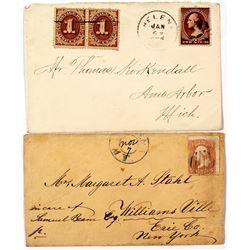 1 1
HELENA
JAN
Mr Thomas Kirkendall
Ann Arbor
Mich.
NOV
7
Mrs. Margaret A. Stahl
in care of
Samuel Beam Esq.
Williams Ville
Erie Co
New York